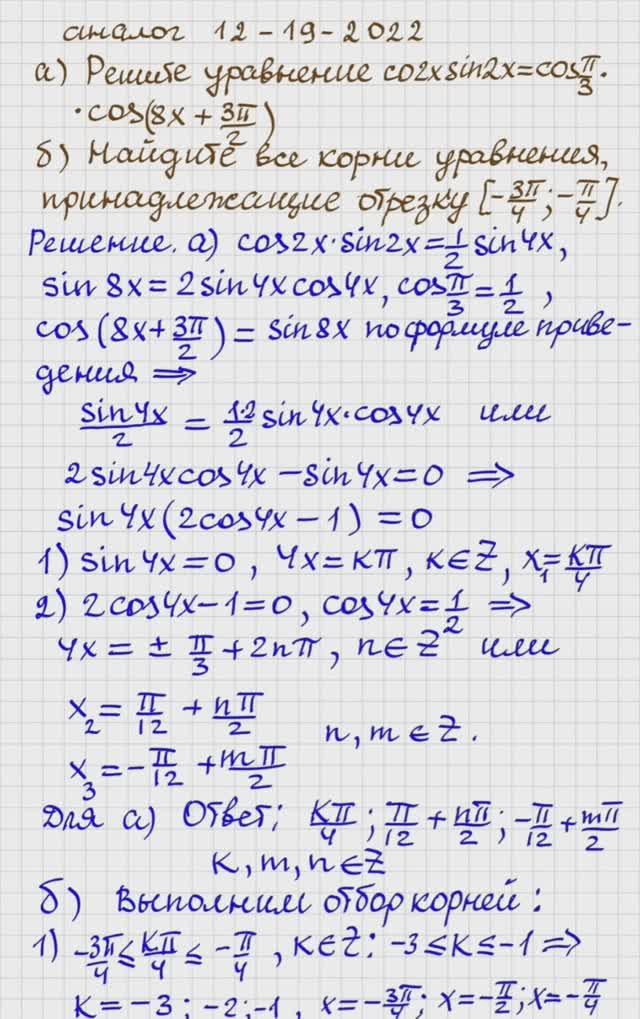 аналог 12-19-2022
а) Решите уравнение co2x sin2x = cos π/3 ·
· cos(8x + 3π/2)
б) Найдите все корни уравнения,
принадлежащие отрезку [-3π/4; -π/4].
Решение. а) cos2x·sin2x = 1/2 sin4x,
sin 8x = 2 sin 4x cos 4x, cos π/3 = 1/2,
cos(8x + 3π/2) = sin 8x по формуле приве-
дения ⇒
sin4x/2 = 1·2/2 sin4x·cos4x или
2 sin4x cos4x - sin4x = 0 ⇒
sin 4x (2cos4x - 1) = 0
1) sin 4x = 0, 4x = kπ, k∈Z, x₁ = kπ/4
2) 2cos4x - 1 = 0, cos4x = 1/2 ⇒
4x = ± π/3 + 2nπ, n∈Z или
x₂ = π/12 + nπ/2
n, m ∈ Z.
x₃ = -π/12 + mπ/2
Для а) Ответ: kπ/4; π/12 + nπ/2; -π/12 + mπ/2
k, m, n ∈ Z
б) Выполним отбор корней:
1) -3π/4 ≤ kπ/4 ≤ -π/4, k∈Z: -3 ≤ k ≤ -1 ⇒
k = -3; -2; -1, x = -3π/4; x = -π/2; x = -π/4